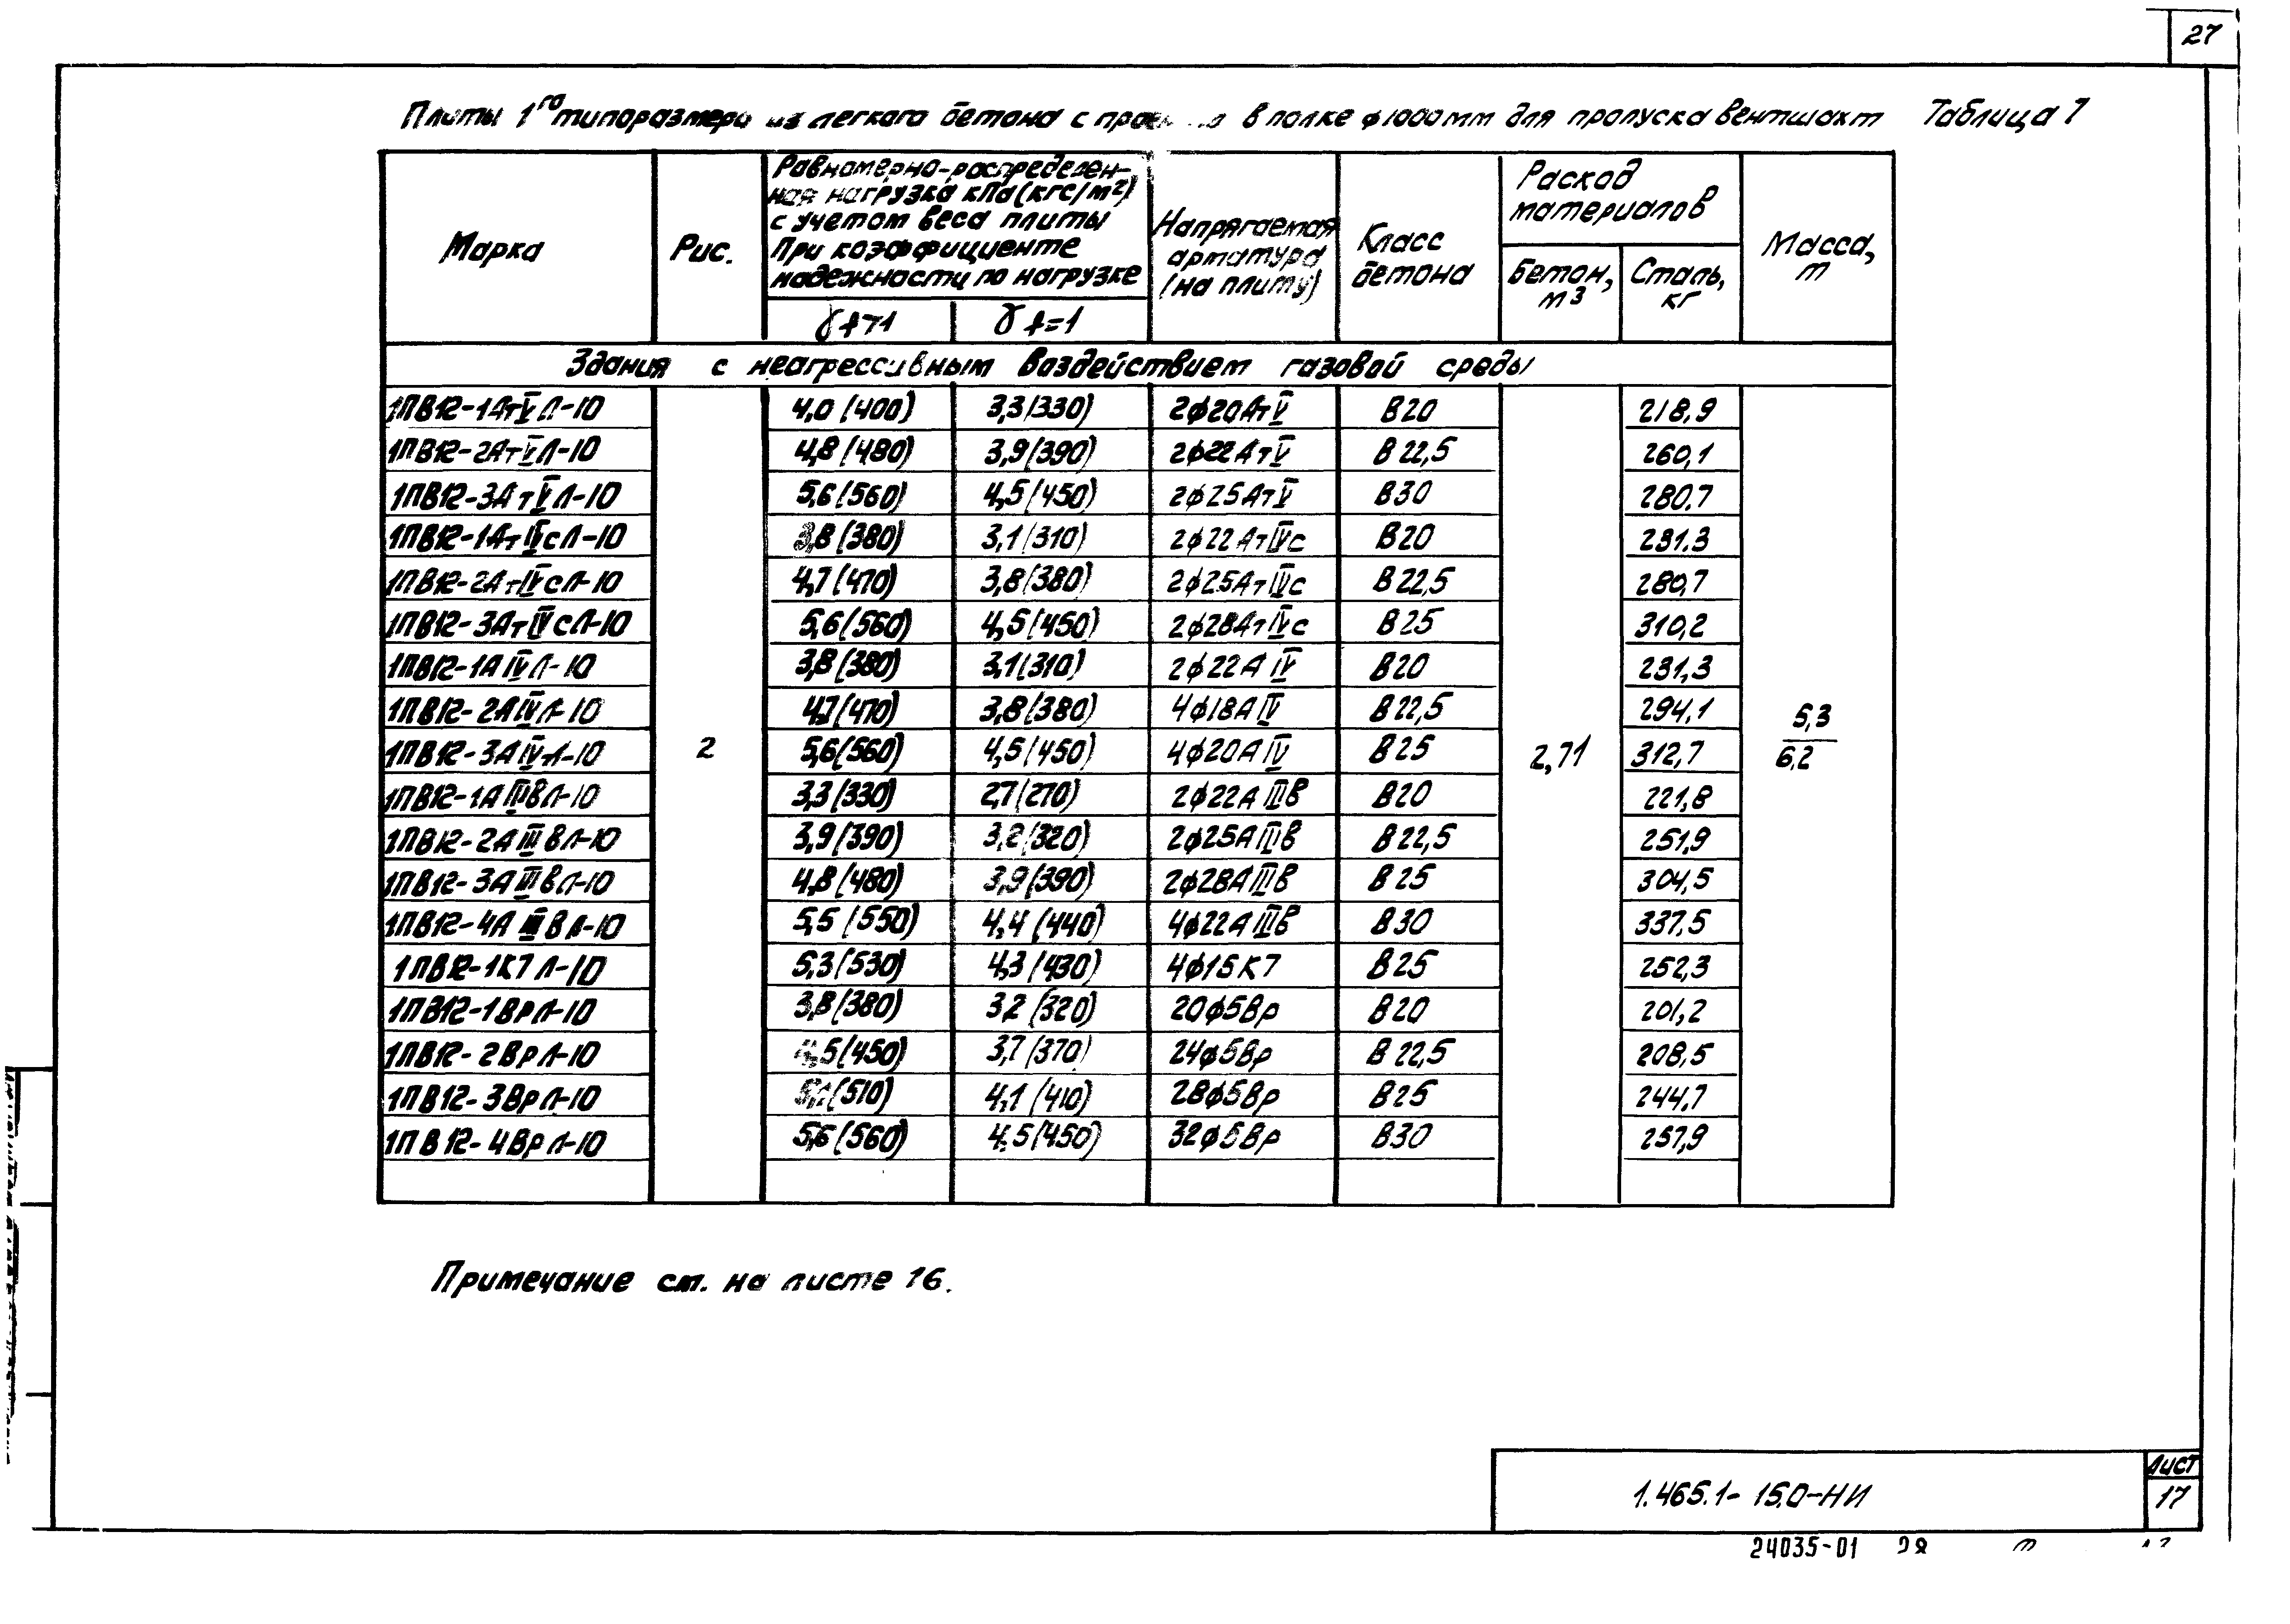 27
Плиты 1го типоразмера из легкого бетона с в полке ф1000мм для пропуска вентшахт Таблица 7
Марка
Рис.
Равномерно-распределен-
ная нагрузка кПа (кгс/м²)
с учетом веса плиты
При коэффициенте
надежности по нагрузке
γf>1
γf=1
Напрягаемая
арматура
(на плиту)
Класс
бетона
Расход
материалов
Бетон,
м3
Сталь,
кг
Масса,
т
Здания с неагрессивным воздействием газовой среды
1ПВ12-1АтVЛ-10 4,0 (400) 3,3(330) 2ф20АтV В20 218,9
1ПВ12-2АтVЛ-10 4,8 (480) 3,9(390) 2ф22АтV В22,5 260,1
1ПВ12-3АтVЛ-10 5,6(560) 4,5(450) 2ф25АтV В30 280,7
1ПВ12-1АтIVсЛ-10 3,8(380) 3,1(310) 2ф22АтIVс В20 231,3
1ПВ12-2АтIVсЛ-10 4,7(470) 3,8(380) 2ф25АтIVс В22,5 280,7
1ПВ12-3АтIVсЛ-10 5,6(560) 4,5(450) 2ф28АтIVс В25 310,2
1ПВ12-1АIVЛ-10 3,8(380) 3,1(310) 2ф22АIV В20 231,3
1ПВ12-2АIVЛ-10 4,7(470) 3,8(380) 4ф18АIV В22,5 294,1
1ПВ12-3АIVЛ-10 5,6(560) 4,5(450) 4ф20АIV В25 312,7
1ПВ12-1АIIIвЛ-10 3,3(330) 2,7(270) 2ф22АIIIв В20 221,8
1ПВ12-2АIIIвЛ-10 3,9(390) 3,2(320) 2ф25АIIIв В22,5 251,9
1ПВ12-3АIIIвЛ-10 4,8(480) 3,9(390) 2ф28АIIIв В25 304,5
1ПВ12-4АIIIвЛ-10 5,5(550) 4,4(440) 4ф22АIIIв В30 337,5
1ПВ12-1К7Л-10 5,3(530) 4,3(430) 4ф15К7 В25 252,3
1ПВ12-1ВрЛ-10 3,8(380) 3,2(320) 20ф5Вр В20 201,2
1ПВ12-2ВрЛ-10 4,5(450) 3,7(370) 24ф5Вр В22,5 208,5
1ПВ12-3ВрЛ-10 5,1(510) 4,1(410) 28ф5Вр В25 244,7
1ПВ12-4ВрЛ-10 5,6(560) 4,5(450) 32ф5Вр В30 257,9
2
2,71
5,3
6,2
Примечание см. на листе 16.
1.465.1-15.0-НИ
Лист
17
24035-01 28